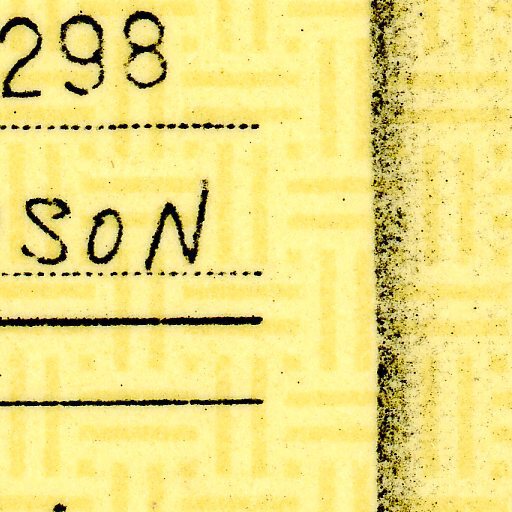 298
SON